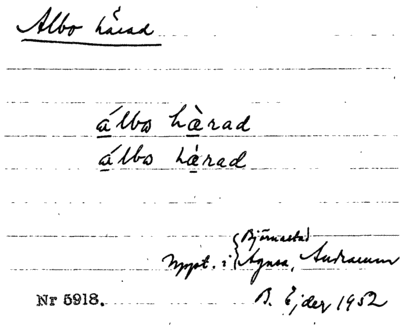 Albo härad
álbo hàrad
álbo hàrad
Björnastad
uppt. i Agusa, Andrarum
Nr 5918. B. Ejder 1952